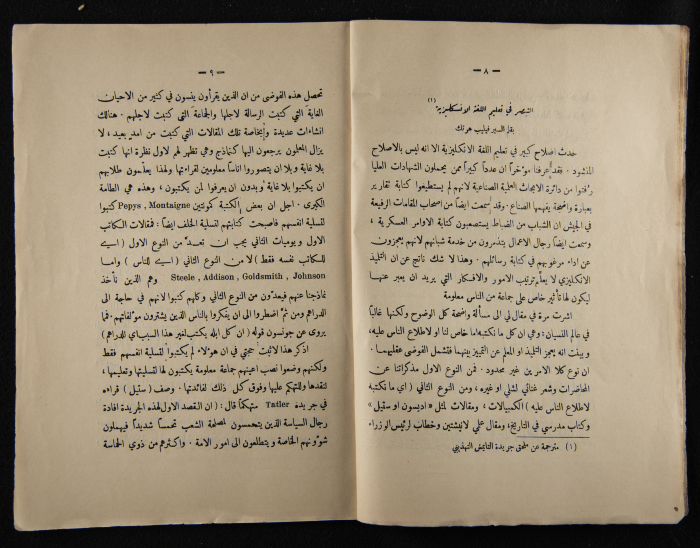 — ٨ —
التبصر في تعليم اللغة الانكليزية (١)
بقلم السير فيليب هرتك
حدث اصلاح كبير في تعليم اللغة الانكليزية الا انه ليس بالاصلاح
المنشود . فقد عرفنا مؤخراً ان عدداً كبيراً ممن يحملون الشهادات العليا
رفتوا من دائرة الابحاث العلمية الصناعية لانهم لم يستطيعوا كتابة تقارير
بعبارة واضحة يفهمها الصناع . وقد سمعت ايضاً من اصحاب المقامات الرفيعة
في الجيش ان الشباب من الضباط يستصعبون كتابة الاوامر العسكرية ،
وسمعت ايضاً رجال الاعمال يتذمرون من خدمة شبانهم لانهم يعجزون
عن اداء مرغوبهم في كتابة رسائلهم . وهذا لا شك ناتج عن ان التلميذ
الانكليزي لا يعلّم ترتيب الامور والافكار التي يريد ان يعبر عنها
ليكون لها تأثير خاص على جماعة من الناس معلومة
اشرت مرة في مقال لي الى مسألة واضحة كل الوضوح ولكنها غالباً
في عالم النسيان : وهي ان كل ما نكتبه اما خاص لنا او لاطلاع الناس عليه،
وبيت انه يعجز التلميذ او المعلم عن التمييز بينهما فتشمل الفوضى عقليهما .
ان نوع كلا الامرين غير محدود . فمن النوع الاول مذكراتنا عن
المحاضرات وشعر غنائي لشلي او غيره ، ومن النوع الثاني ( اي ما نكتبه
لاطلاع الناس عليه ) الكمبيالات ، ومقالات لمثل « اديسون او ستيل »
وكتاب مدرسي في التاريخ، ومقال علمي لاينشتين وخطاب لرئيس الوزراء
(١) مترجمة عن ملحق جريدة التايمس التهذيبي
— ٩ —
تحصل هذه الفوضى من ان الذين يقرأون ينسون في كثير من الاحيان
الغاية التي كتبت الرسالة لاجلها والجماعة التي كتبت لاجلهم . هنالك
انشاءات عديدة وبخاصة تلك المقالات التي كتبت من امد بعيد ، لا
يزال المعلمون يرجعون اليها كنماذج وهي تظهر لهم لاول نظرة انها كتبت
بلا غاية وبلا ان يتصوروا اناساً معلومين لقراءتها ولهذا يعلّمون طلابهم
ان يكتبوا بلا غاية وبدون ان يعرفوا لمن يكتبون ، وهذه هي الطامة
الكبرى . اجل ان بعض الكتبة كمونتين Pepys , Montaigne كتبوا
لتسلية انفسهم فاصبحت كتابتهم لتسلية الخلف ايضاً : فمقالات الكاتب
الاول ويوميات الثاني يجب ان تعدّ من النوع الاول ( اسيه
للكاتب نفسه فقط ) لا من النوع الثاني ( اسيه للناس ) واما
Steele , Addison , Goldsmith , Johnson وهم الذين نأخذ
نماذجنا عنهم فيعدّون من النوع الثاني وكلهم كتبوا لانهم في حاجة الى
الدراهم ومن ثمّ اضطروا الى ان يفكروا بالناس الذين يشترون مؤلفاتهم . فما
يروى عن جونسون قوله ( ان كل ابله يكتب لغير هذا السبب اي للدراهم )
اذكر هذا لاثبت حجتي في ان هؤلاء لم يكتبوا لتسلية انفسهم فقط
ولكنهم وضعوا نصب اعينهم جماعة معلومة يكتبون لها لتسليتها وتعليمها ،
لنقدها وللتهكم عليها وفوق كل ذلك لفائدتها . وصف ( ستيل ) قراءه
في جريدة Tatler متهكماً قال : ( ان القصد الاول لهذه الجريدة افادة
رجال السياسة الذين يتحمسون لمصلحة الشعب تحمساً شديداً فيهملون
شؤونهم الخاصة ويتطلعون الى امور الامة . واكثرهم من ذوي الحماسة